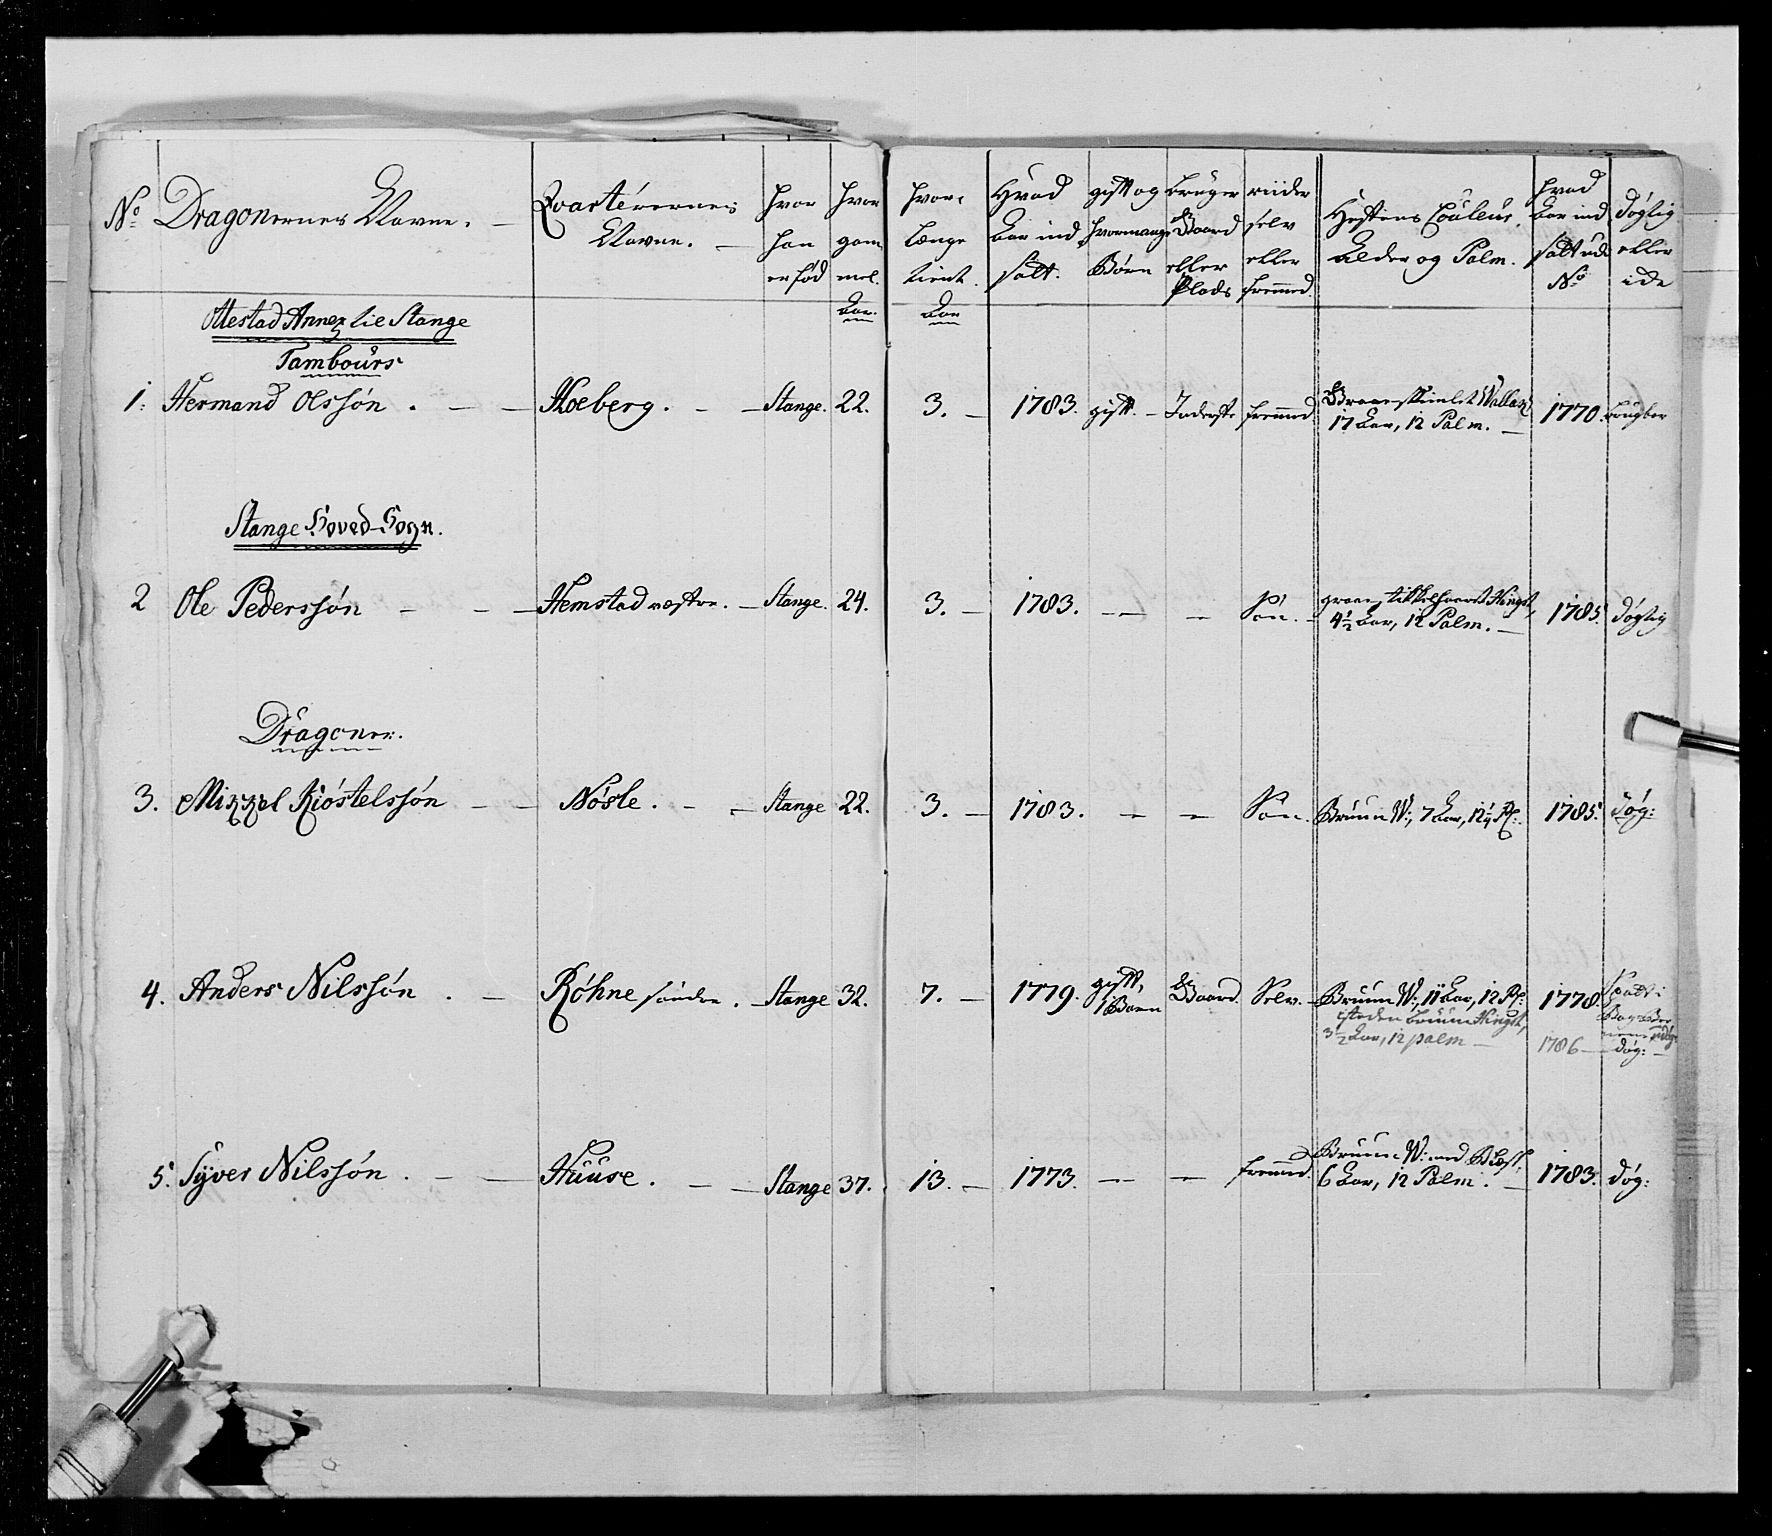 No Dragonernes Navne. Qvarterernes Navne. hvor han er fød hvor gam mel. Aar. hvor længe tient. Aar Hvad Aar ind satt. gift og hvormange Børn bruger Gaard eller Plads riider selv eller fremmed. Hestens Couleur, Alder og Palm. hvad Aar ind satt ude No døgtig eller ide
Ottestad Annex tie Stange
Tambours
1. Hermand Olssøn. Hoeberg. Stange. 22. 3. 1783. gift. Inderste fremmed. Graaeskimlet Wallak
17 Aar, 12 Palm. 1770. brugbar
Stange Hoved-Sogn.
2 Ole Pederssøn Hemstad vestre. Stange. 24. 3. 1783. Søn. graae stikkelhaaret Hingst,
4½ Aar, 12 Palm. 1785. døgtig
Dragoner.
3. Mikkel Kiøstelssøn Nøsle. Stange 22. 3. 1783. Søn. Bruun W:, 7 Aar, 12¼ P: 1785. døg:
4. Anders Nilssøn. Røhne søndre. Stange 32. 7. 1779. gift, 1 Barn Gaard. Selv. Bruun W:, 11 Aar, 12 P: 1778.
isteden bruun Hingst,
3½ Aar, 12 palm 1786 døg:
5. Syver Nilssøn. Huuse. Stange 37. 13. 1773. fremmed. Bruun W: med Blest,
6 Aar, 12 Palm. 1783. døg: